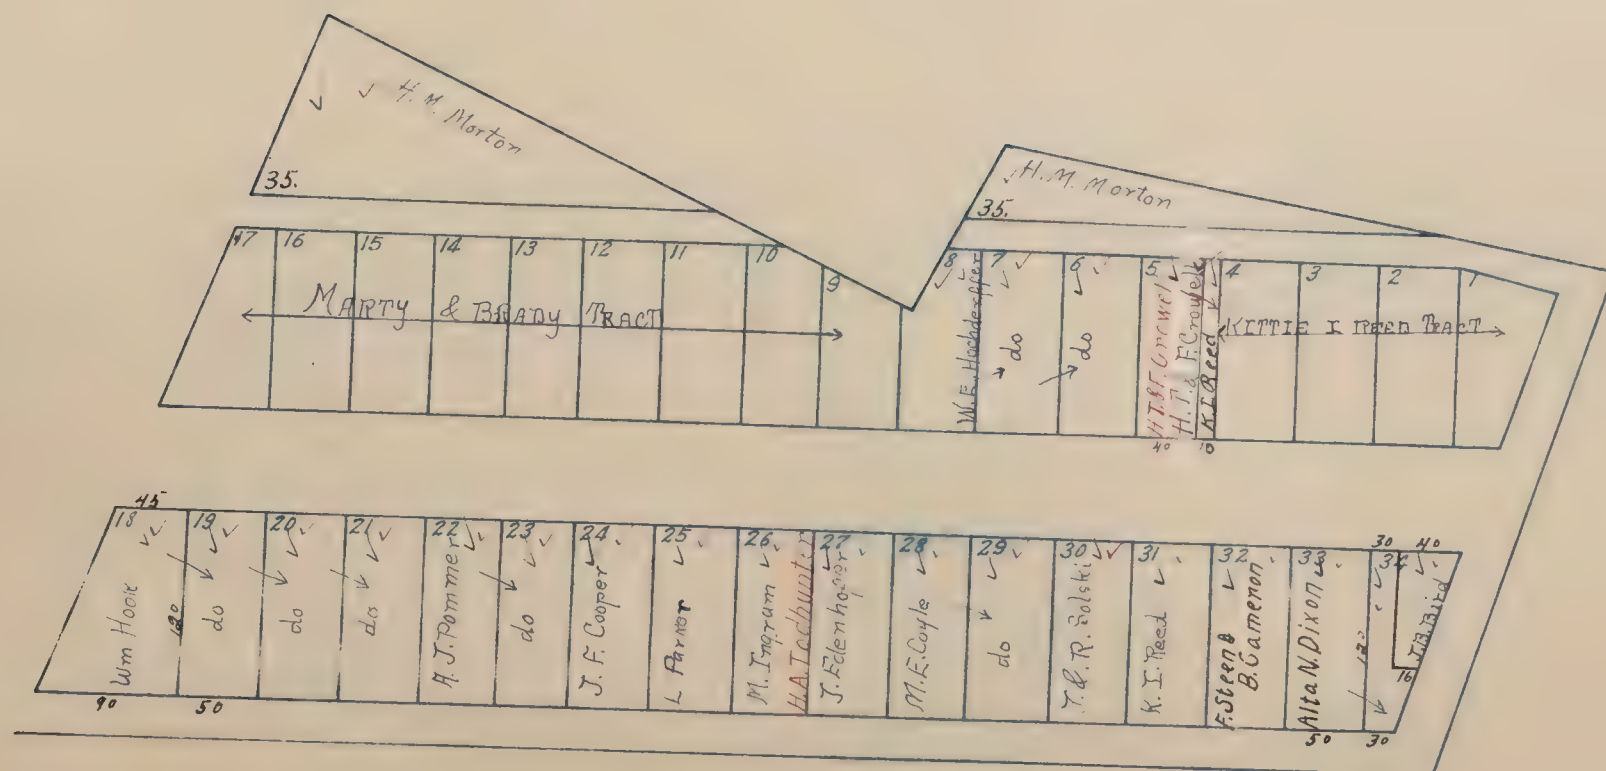 H. M. Morton
35.
H. M. Morton
35.
17 16 15 14 13 12 11 10 9 8 7 6 5 4 3 2 1
MARTY & BRADY TRACT
W. E. Hochderffer
do
do
H.T. & F. Crowel
H. T. & F. Crowell
K I Reed
KITTIE I REED TRACT
40 10
45
18 19 20 21 22 23 24 25 26 27 28 29 30 31 32 33 34
30 40
Wm Hook
120
do
do
do
A. J. Pommer
do
J. F. Cooper
L Parker
M. Ingram
H.A. Todhunter
J. Edenhofer
M. E. Coyle
do
T. & R. Solski
K. I. Reed
F. Steen &
B. Cameron
Alta N. Dixon
120
J.B. Bird
16
90 50 50 30